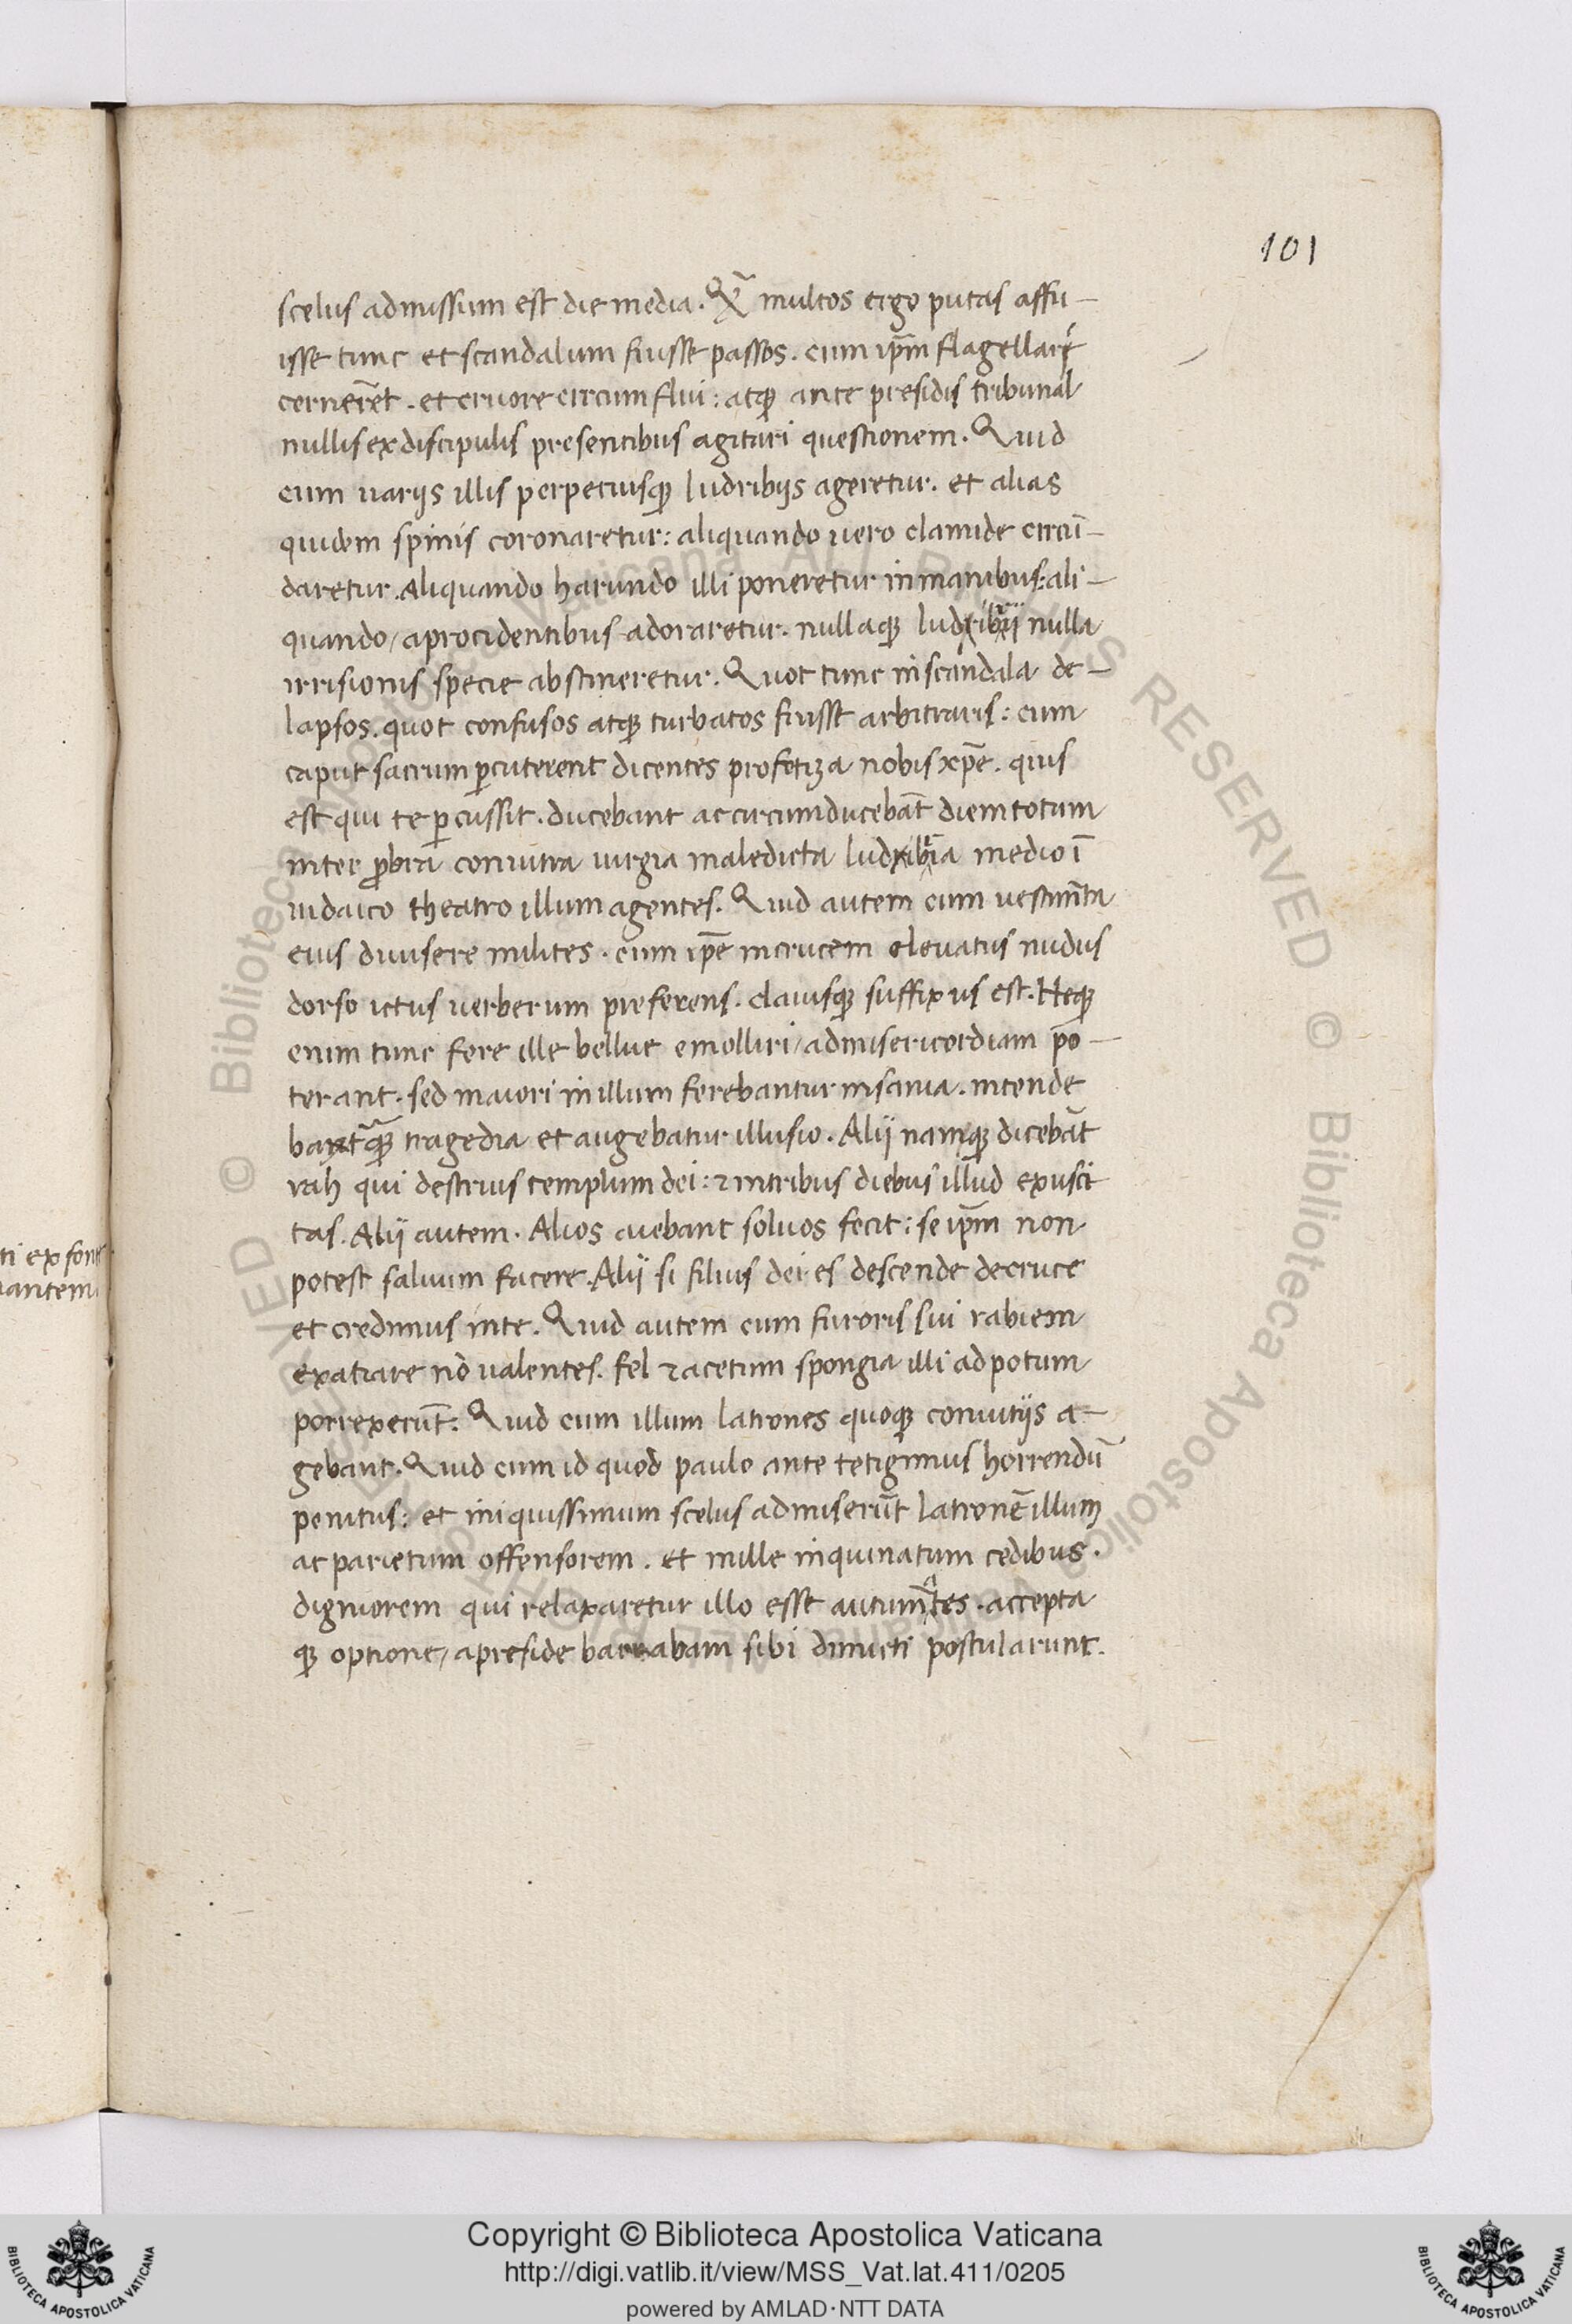 101
scelus admissum est die media. Qͫ multos ergo putas affu-
isse tunc et scandalum fuisse passos. cum ip̄m flagellari
cernerēt. et cruore circum flui: atqꝫ ante presidis tribunal
nullis ex discipulis presentibus agitari questionem. Quid
cum uarijs illis perpetuisqꝫ ludribijs ageretur. et alias
quidem spinis coronaretur: aliquando uero clamide circū-
daretur. aliquando harundo illi poneretur in manibus: ali-
quando/ a procidentibus adoraretur. nullaqꝫ ludibrii nulla
irrisionis specie abstineretur. Quot tunc in scandala de-
lapsos. quot confusos atqꝫ turbatos fuisse arbitraris: cum
caput sacrum ꝑcuterent dicentes profetiza nobis xp̄e. quis
est qui te ꝑcussit. ducebant ac circumducebāt diem totum
inter ꝓbra conuitia iurgia maledicta ludibria medio ī
iudaico theatro illum agentes. Quid autem cum uestimīta
eius diuisere milites. cum ip̄e in crucem eleuatus nudus
dorso ictus uerberum preferens. clauisqꝫ suffixus est. Neqꝫ
enim tunc fere ille bellue emolliri/ ad misericordiam po-
terant. sed maiori in illum ferebantur insania. intende
batqꝫ tragedia et augebatur illusio. Alij namqꝫ dicebāt
vah qui destruis templum dei: ⁊ in tribus diebus illud exusci
tas. Alij autem. Alios aiebant saluos fecit: se ip̄m non
potest saluum facere. Alij si filius dei es descende de cruce
et credimus in te. Quid autem cum furoris sui rabiem
exatiare nō ualentes. fel ⁊ acetum spongia illi ad potum
porrexerūt: Quid cum illum latrones quoqꝫ conuitijs a-
gebant. Quid cum id quod paulo ante tetigimus horrendū
penitus: et iniquissimum scelus admiserūt latronē illum
ac parietum offensorem. et mille inquinatum cedibus.
digniorem qui relaxaretur illo esse autumātes. accepta
qꝫ optione/ a preside barrabam sibi dimitti postularunt.
ti ex font
antem
Copyright © Biblioteca Apostolica Vaticana
http://digi.vatlib.it/view/MSS_Vat.lat.411/0205
powered by AMLAD·NTT DATA